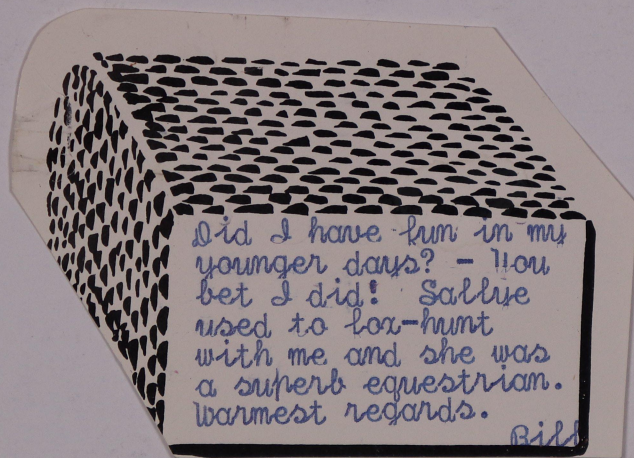 Did I have fun in my
younger days? - You
bet I did! Sallye
used to fox-hunt
with me and she was
a superb equestrian.
Warmest regards.
Bill